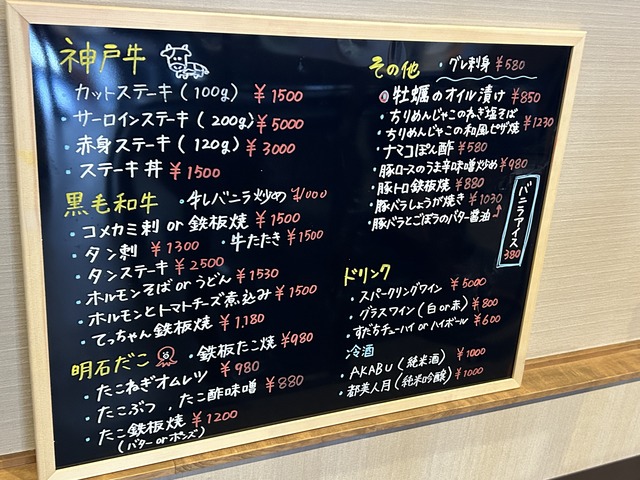 神戸牛
・カットステーキ(100g) ¥1500
・サーロインステーキ(200g) ¥5000
・赤身ステーキ(120g) ¥3000
・ステーキ丼 ¥1500
黒毛和牛 ・牛レバニラ炒め ¥1000
・コメカミ刺 or 鉄板焼 ¥1500
・タン刺 ¥1300 ・牛たたき ¥1500
・タンステーキ ¥2500
・ホルモンそば or うどん ¥1530
・ホルモンとトマトチーズ煮込み ¥1500
・てっちゃん鉄板焼 ¥1,180
明石だこ ・鉄板たこ焼 ¥980
・たこねぎオムレツ ¥980
・たこぶつ ・たこ酢味噌 ¥880
・たこ鉄板焼 ¥1200
(バター or ポンズ)
その他 ・グレ刺身 ¥580
牡蠣のオイル漬け ¥850
・ちりめんじゃこのねぎ塩そば
・ちりめんじゃこの和風ピザ焼 ¥1230
・ナマコぽん酢 ¥580
・豚ロースのうま辛味噌炒め ¥980
・豚トロ鉄板焼 ¥880
・豚バラしょうが焼き ¥1030
・豚バラとごぼうのバター醤油
バニラアイス 380
ドリンク
・スパークリングワイン ¥5000
・グラスワイン(白 or 赤) ¥800
・すだちチューハイ or ハイボール ¥600
冷酒
・AKABU(純米酒) ¥1000
・都美人月(純米吟醸) ¥1000